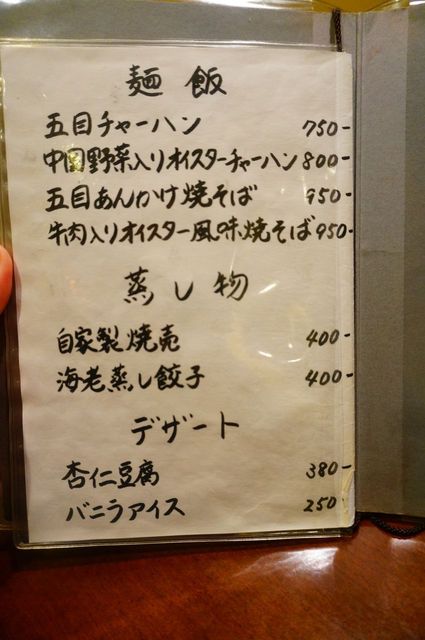 麺飯
五目チャーハン 750-
中国野菜入りオイスターチャーハン 800-
五目あんかけ焼そば 950-
牛肉入りオイスター風味焼そば 950-
蒸し物
自家製焼売 400-
海老蒸し餃子 400-
デザート
杏仁豆腐 380-
バニラアイス 250-